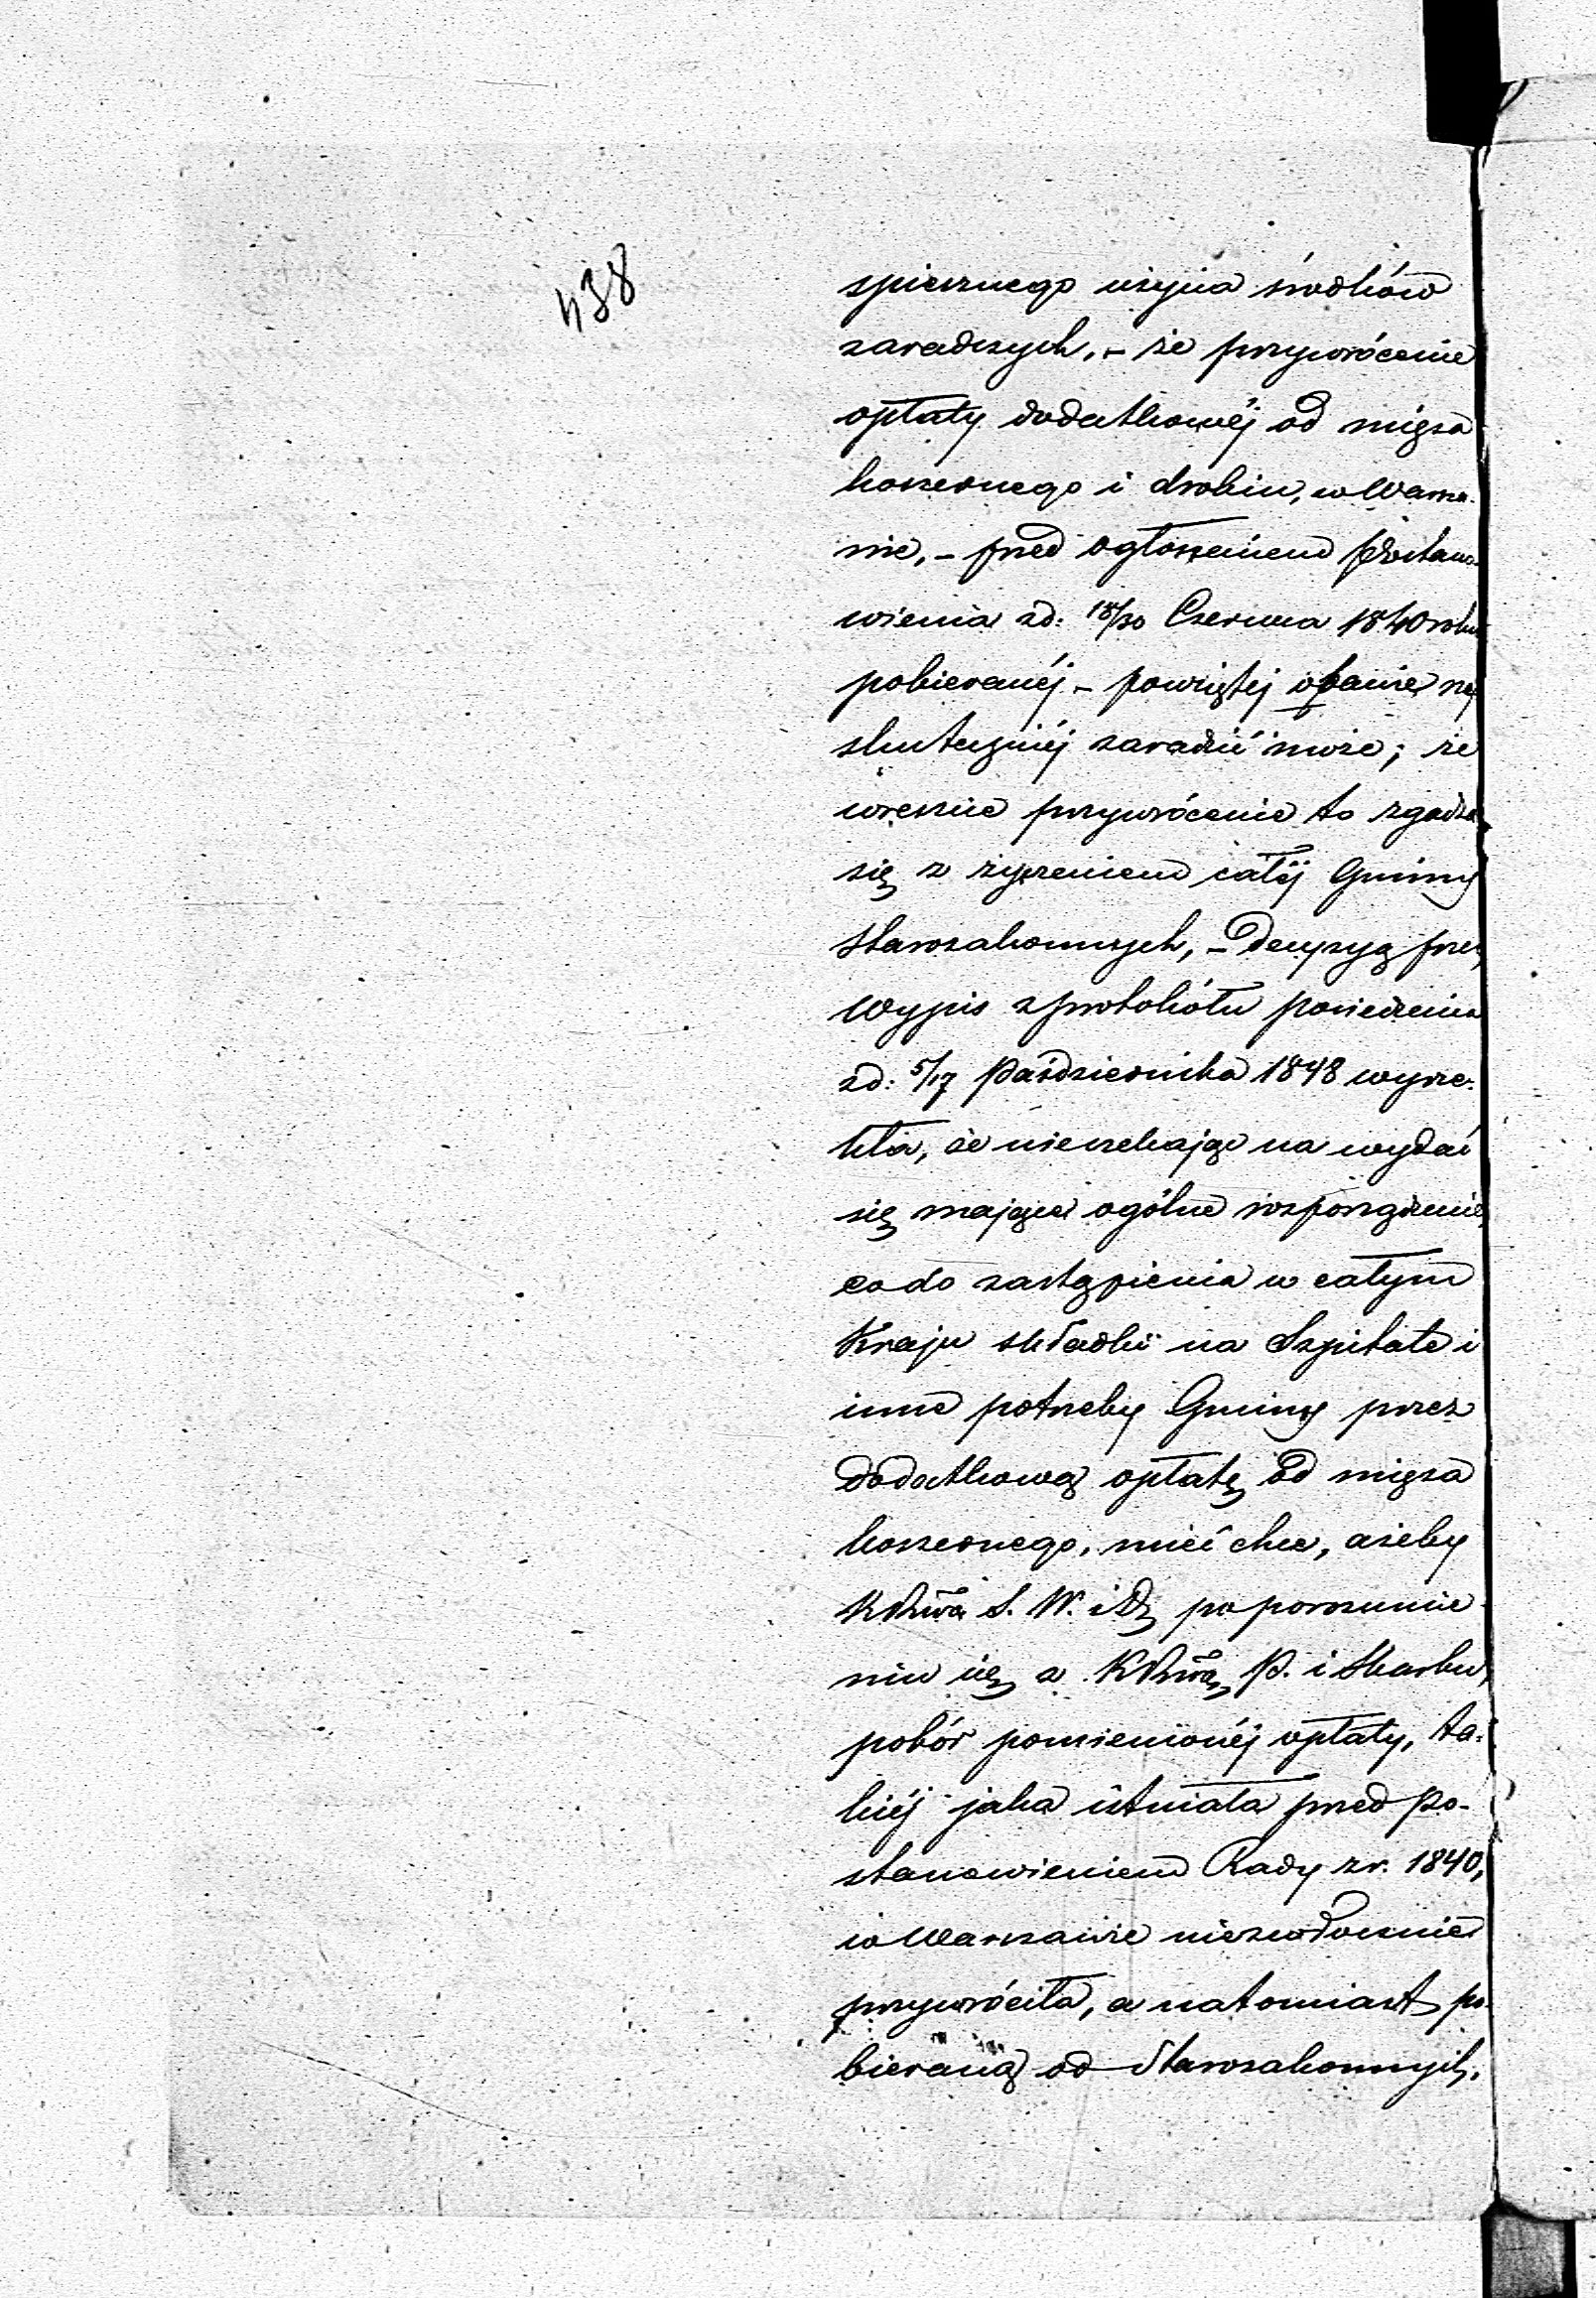 438
spiesznego użycia środków
zaradczych, – że przywrócenie
opłaty dodatkowéj od mięsa
koszernego i drobiu, w Warsza-
wie, – przed ogłoszeniem Postano-
wienia zd: 18/30 Czerwca 1840 roku
pobieranéj – powziętej obawie naj
skuteczniéj zaradzić może; że
wreszcie przywrócenie to zgadza
się z życzeniem całéj Gminy
Starozakonnych, – Decyzyą przez
Wypis z protokółu posiedzenia
zd: 5/17 Października 1848 wyrze-
kła, że nieczekając na wydać
się mające ogólne rozporządzenie
co do zastąpienia w całym
Kraju składki na Szpitale i
inne potrzeby Gminy przez
dodatkową opłatę od mięsa
koszernego, mieć chce, ażeby
S. W. i D. po porozumie-
niu się z P. i Skarbu,
pobór pomienionéj opłaty, ta-
kiéj jaka istniała przed Po-
stanowieniem Rady z r. 1840,
w Warszawie niezwłocznie
przywróciła, a natomiast po-
bieraną od Starozakonnych,